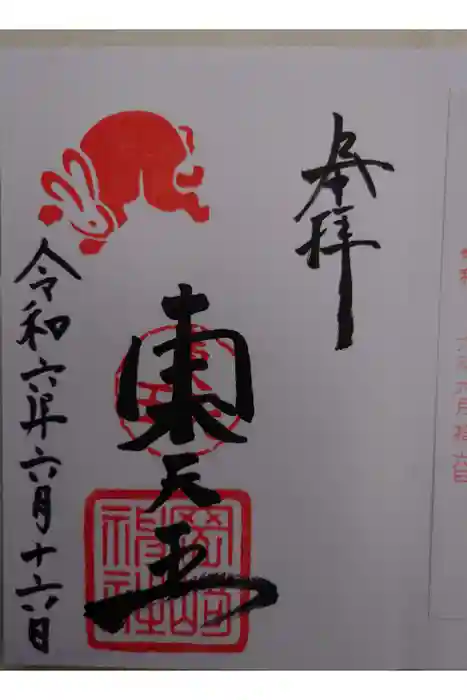 奉拝
東天王
岡崎神社
令和六年六月十六日